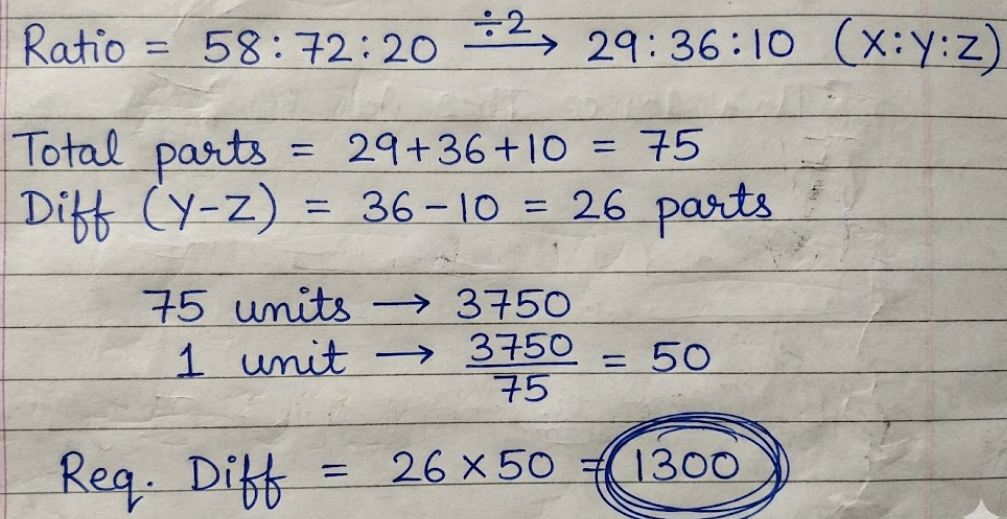 Ratio = 58:72:20 ÷2→ 29:36:10 (X:Y:Z)
Total parts = 29+36+10 = 75
Diff (Y-Z) = 36-10 = 26 parts
75 units → 3750
1 unit → 3750/75 = 50
Req. Diff = 26×50 = 1300